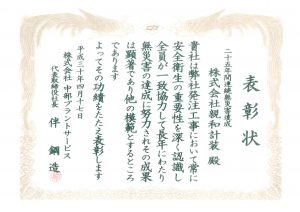 表彰状
二十五年間連続無災害達成
株式会社親和計装 殿
貴社は弊社発注工事において常に
安全衛生の重要性を深く認識し
全員が一致協力して長年にわたり
無災害の達成に努力されその成果
は顕著であり他の模範とするところ
であります
よってその功績をたたえ表彰します
平成三十年四月十七日
株式会社 中部プラントサービス
代表取締役社長 伴 鋼造